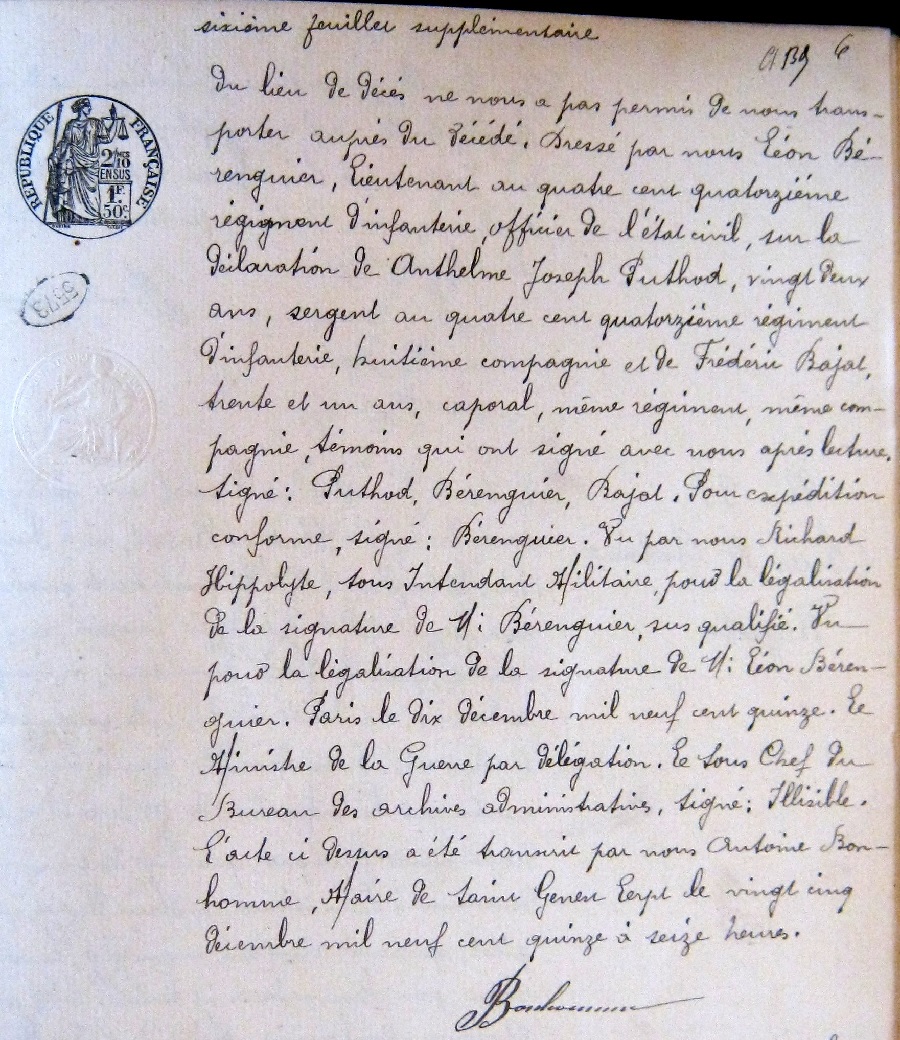 sixième feuillet supplémentaire
6
RÉPUBLIQUE FRANÇAISE
2/10
EN SUS
1F.
50c
5573
du lieu de décés ne nous a pas permis de nous trans-
porter auprès du décédé. Dressé par nous Léon Bé-
renguier, Lieutenant au quatre cent quatorzième
régigment d'infanterie, officier de l'état civil, sur la
déclaration de Anthelme Joseph Puthod, vingt deux
ans, sergent au quatre cent quatorzième régiment
d'infanterie, huitième compagnie et de Frédéric Bajat,
trente et un ans, caporal, même régiment, même com-
pagnie, témoins qui ont signé avec nous après lecture.
Signé: Puthod, Bérenguier, Bajat. Pour expédition
conforme, signé: Bérenguier. Vu par nous Richard
Hippolyte, Sous Intendant Militaire, pour la législation
de la signature de M: Bérenguier, sus qualifié. Vu
pour la légalisation de la signature de M: Léon Béren-
guier. Paris le dix décembre mil neuf cent quinze. Le
Ministre de la Guerre par délégation. Le Sous Chef du
Bureau des archives administratives, Signé: Illisible.
L'acte ci dessus a été transcrit par nous Antoine Bon-
homme, Maire de Saint Genest Lerpt le vingt cinq
décembre mil neuf cent quinze à seize heures.
Bonhomme